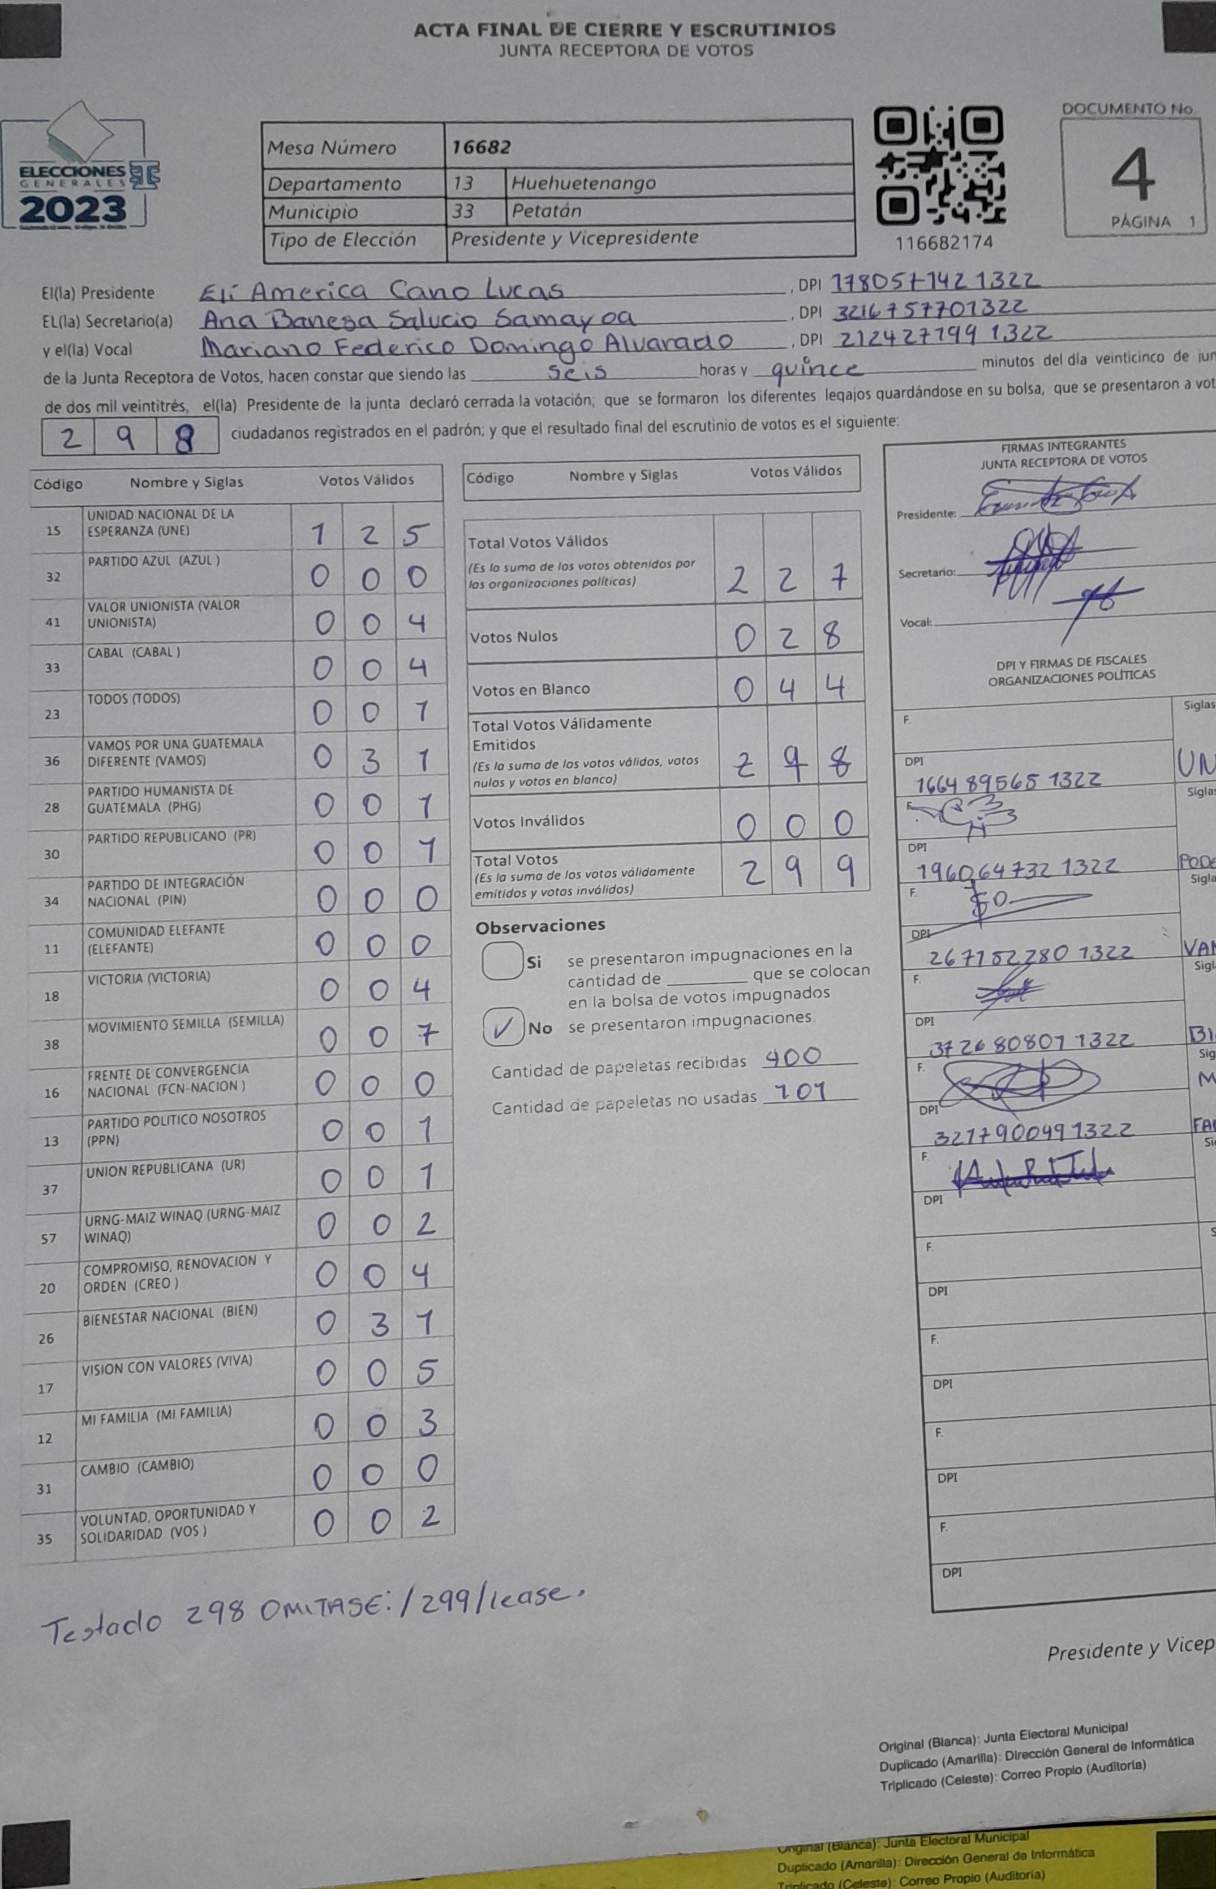 ACTA FINAL DE CIERRE Y ESCRUTINIOS
JUNTA RECEPTORA DE VOTOS
ELECCIONES
GENERALES
2023
Mesa Número 16682
Departamento 13 Huehuetenango
Municipio 33 Petatán
Tipo de Elección Presidente y Vicepresidente
116682174
DOCUMENTO No.
4
PÁGINA 1
El(la) Presidente Eli America Cano Lucas, DPI
EL(la) Secretario(a) Ana Banesa Salucio Samayoa, DPI 3216757701322
y el(la) Vocal Mariano Federico Domingo Alvarado, DPI 2124277991322
de la Junta Receptora de Votos, hacen constar que siendo las seis horas y quince minutos del día veinticinco de jun
de dos mil veintitrés, el(la) Presidente de la junta declaró cerrada la votación; que se formaron los diferentes legajos guardándose en su bolsa, que se presentaron a vot
2 9 8 ciudadanos registrados en el padrón; y que el resultado final del escrutinio de votos es el siguiente:
Código Nombre y Siglas Votos Válidos
15 UNIDAD NACIONAL DE LA
ESPERANZA (UNE) 1 2 5
32 PARTIDO AZUL (AZUL ) 0 0 0
41 VALOR UNIONISTA (VALOR
UNIONISTA) 0 0 4
33 CABAL (CABAL ) 0 0 4
23 TODOS (TODOS) 0 0 1
36 VAMOS POR UNA GUATEMALA
DIFERENTE (VAMOS) 0 3 1
28 PARTIDO HUMANISTA DE
GUATEMALA (PHG) 0 0 1
30 PARTIDO REPUBLICANO (PR) 0 0 1
34 PARTIDO DE INTEGRACIÓN
NACIONAL (PIN) 0 0 0
11 COMUNIDAD ELEFANTE
(ELEFANTE) 0 0 0
18 VICTORIA (VICTORIA) 0 0 4
38 MOVIMIENTO SEMILLA (SEMILLA) 0 0 7
16 FRENTE DE CONVERGENCIA
NACIONAL (FCN-NACION ) 0 0 0
13 PARTIDO POLITICO NOSOTROS
(PPN) 0 0 1
37 UNION REPUBLICANA (UR) 0 0 1
57 URNG-MAIZ WINAQ (URNG-MAIZ
WINAQ) 0 0 2
20 COMPROMISO, RENOVACION Y
ORDEN (CREO ) 0 0 4
26 BIENESTAR NACIONAL (BIEN) 0 3 1
17 VISION CON VALORES (VIVA) 0 0 5
12 MI FAMILIA (MI FAMILIA) 0 0 3
31 CAMBIO (CAMBIO) 0 0 0
35 VOLUNTAD, OPORTUNIDAD Y
SOLIDARIDAD (VOS ) 0 0 2
Código Nombre y Siglas Votos Válidos
Total Votos Válidos
(Es la suma de los votos obtenidos por
las organizaciones políticas) 2 2 7
Votos Nulos 0 2 8
Votos en Blanco 0 4 4
Total Votos Válidamente
Emitidos
(Es la suma de los votos válidos, votos
nulos y votos en blanco) 2 9 8
Votos Inválidos 0 0 0
Total Votos
(Es la suma de los votos válidamente
emitidos y votos inválidos) 2 9 9
Observaciones
Si se presentaron impugnaciones en la
cantidad de ________ que se colocan
en la bolsa de votos impugnados
✓ No se presentaron impugnaciones.
Cantidad de papeletas recibidas 400
Cantidad de papeletas no usadas 101
FIRMAS INTEGRANTES
JUNTA RECEPTORA DE VOTOS
Presidente:
Secretario:
Vocal:
DPI Y FIRMAS DE FISCALES
ORGANIZACIONES POLÍTICAS
Siglas
F.
DPI
1664895651322 UN
Sigla
F.
DPI
1960647321322 PODE
Sigla
F.
DPI
2671522801322 VA
Sigl
F.
DPI
3726808011322 BI
Sig
F. M
DPI
3217900491322 FA
Si
F.
DPI
F.
DPI
F.
DPI
F.
DPI
F.
DPI
Testado 298 OMITASE: /299/lease.
Presidente y Vicep
Original (Blanca): Junta Electoral Municipal
Duplicado (Amarilla): Dirección General de Informática
Triplicado (Celeste): Correo Propio (Auditoría)
Original (Blanca): Junta Electoral Municipal
Duplicado (Amarilla): Dirección General de Informática
Triplicado (Celeste): Correo Propio (Auditoría)